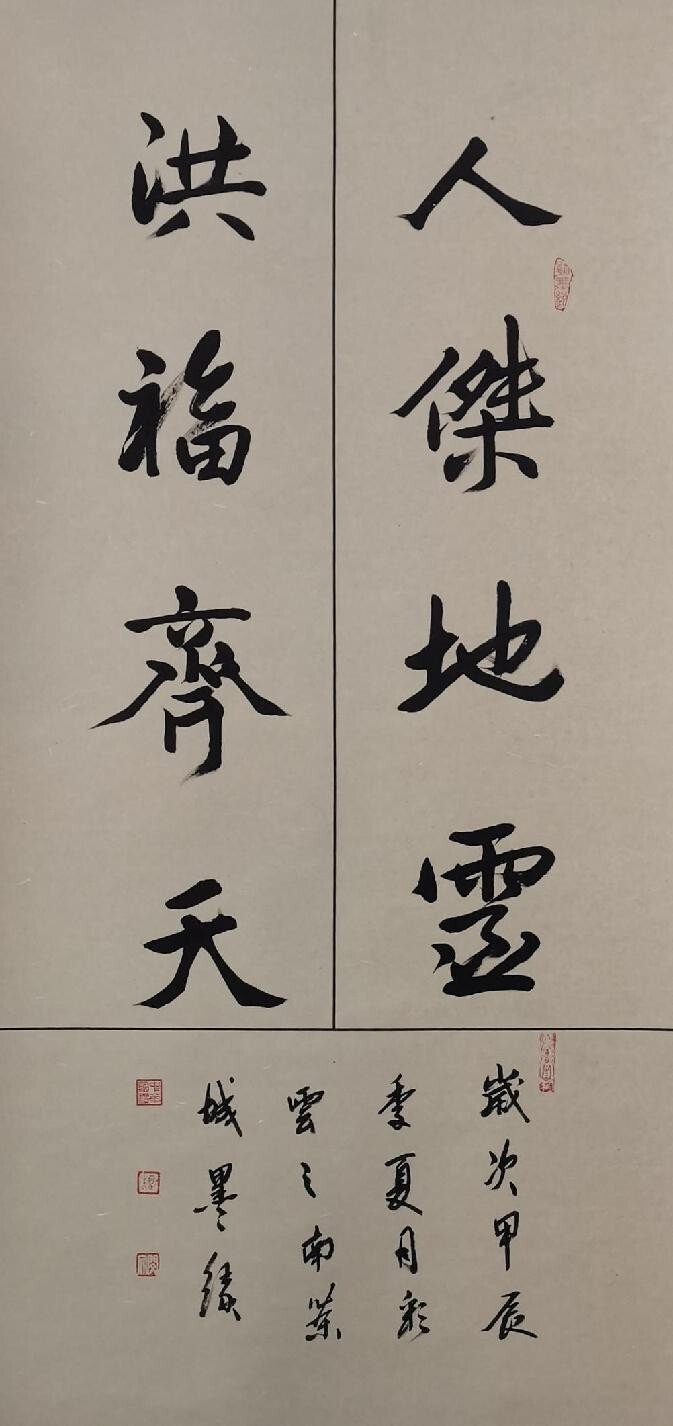 人傑地靈
洪福齊天
歲次甲辰
季夏月彩
雲之南葉
城墨緣